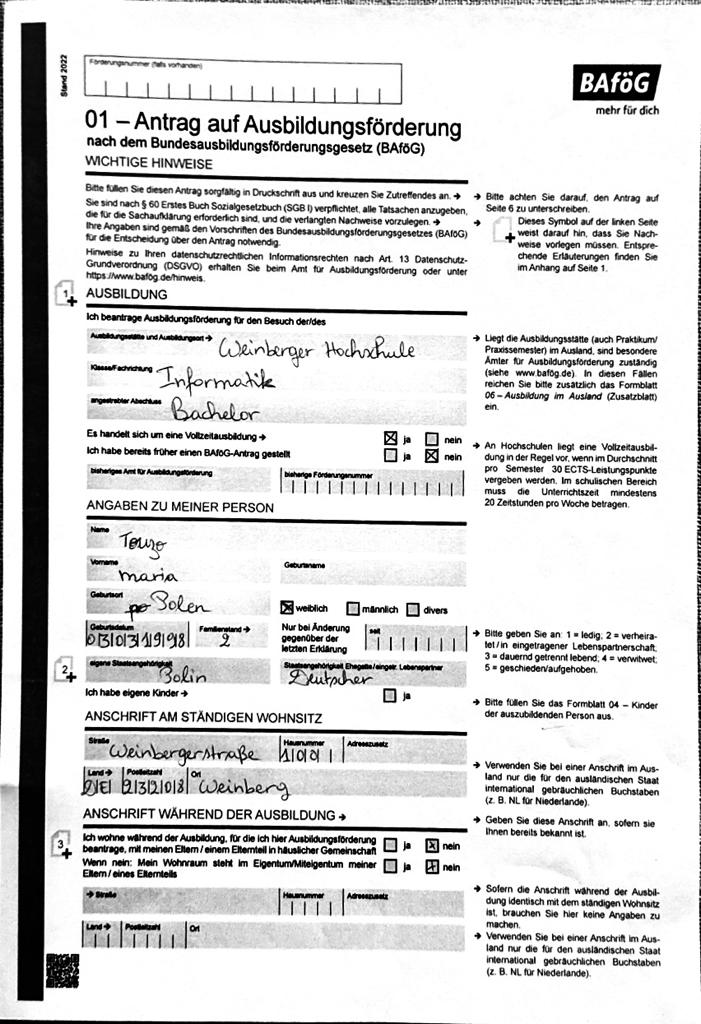 Stand 2022
Förderungsnummer (falls vorhanden)
BAföG
mehr für dich
01 – Antrag auf Ausbildungsförderung
nach dem Bundesausbildungsförderungsgesetz (BAföG)
WICHTIGE HINWEISE
Bitte füllen Sie diesen Antrag sorgfältig in Druckschrift aus und kreuzen Sie Zutreffendes an. →
Sie sind nach § 60 Erstes Buch Sozialgesetzbuch (SGB I) verpflichtet, alle Tatsachen anzugeben,
die für die Sachaufklärung erforderlich sind, und die verlangten Nachweise vorzulegen. →
Ihre Angaben sind gemäß den Vorschriften des Bundesausbildungsförderungsgesetzes (BAföG)
für die Entscheidung über den Antrag notwendig.
Hinweise zu Ihren datenschutzrechtlichen Informationsrechten nach Art. 13 Datenschutz-
Grundverordnung (DSGVO) erhalten Sie beim Amt für Ausbildungsförderung oder unter
https://www.bafög.de/hinweis.
→ Bitte achten Sie darauf, den Antrag auf
Seite 6 zu unterschreiben.
→ Dieses Symbol auf der linken Seite
weist darauf hin, dass Sie Nach-
weise vorlegen müssen. Entspre-
chende Erläuterungen finden Sie
im Anhang auf Seite 1.
1 AUSBILDUNG
Ich beantrage Ausbildungsförderung für den Besuch der/des
Ausbildungsstätte und Ausbildungsort → Weinberger Hochschule
Klasse/Fachrichtung Informatik
angestrebter Abschluss Bachelor
→ Liegt die Ausbildungsstätte (auch Praktikum/
Praxissemester) im Ausland, sind besondere
Ämter für Ausbildungsförderung zuständig
(siehe www.bafög.de). In diesen Fällen
reichen Sie bitte zusätzlich das Formblatt
06 – Ausbildung im Ausland (Zusatzblatt)
ein.
Es handelt sich um eine Vollzeitausbildung → ja nein
Ich habe bereits früher einen BAföG-Antrag gestellt ja nein
bisheriges Amt für Ausbildungsförderung bisherige Förderungsnummer
→ An Hochschulen liegt eine Vollzeitausbil-
dung in der Regel vor, wenn im Durchschnitt
pro Semester 30 ECTS-Leistungspunkte
vergeben werden. Im schulischen Bereich
muss die Unterrichtszeit mindestens
20 Zeitstunden pro Woche betragen.
ANGABEN ZU MEINER PERSON
Name Touzo
Vorname maria Geburtsname
Geburtsort Polen weiblich männlich divers
Geburtsdatum 03031998 Familienstand → 2 Nur bei Änderung
gegenüber der
letzten Erklärung seit
→ Bitte geben Sie an: 1 = ledig; 2 = verheira-
tet / in eingetragener Lebenspartnerschaft;
3 = dauernd getrennt lebend; 4 = verwitwet;
5 = geschieden/aufgehoben.
2 eigene Staatsangehörigkeit Polin Staatsangehörigkeit Ehegatte/eingetr. Lebenspartner Deutscher
Ich habe eigene Kinder → ja
→ Bitte füllen Sie das Formblatt 04 – Kinder
der auszubildenden Person aus.
ANSCHRIFT AM STÄNDIGEN WOHNSITZ
Straße Weinbergerstraße Hausnummer 100 Adresszusatz
Land → DE Postleitzahl 23208 Ort Weinberg
→ Verwenden Sie bei einer Anschrift im Aus-
land nur die für den ausländischen Staat
international gebräuchlichen Buchstaben
(z. B. NL für Niederlande).
ANSCHRIFT WÄHREND DER AUSBILDUNG →
→ Geben Sie diese Anschrift an, sofern sie
Ihnen bereits bekannt ist.
3 Ich wohne während der Ausbildung, für die ich hier Ausbildungsförderung
beantrage, mit meinen Eltern / einem Elternteil in häuslicher Gemeinschaft ja nein
Wenn nein: Mein Wohnraum steht im Eigentum/Miteigentum meiner
Eltern / eines Elternteils ja nein
→ Straße Hausnummer Adresszusatz
Land → Postleitzahl Ort
→ Sofern die Anschrift während der Ausbil-
dung identisch mit dem ständigen Wohnsitz
ist, brauchen Sie hier keine Angaben zu
machen.
→ Verwenden Sie bei einer Anschrift im Aus-
land nur die für den ausländischen Staat
international gebräuchlichen Buchstaben
(z. B. NL für Niederlande).